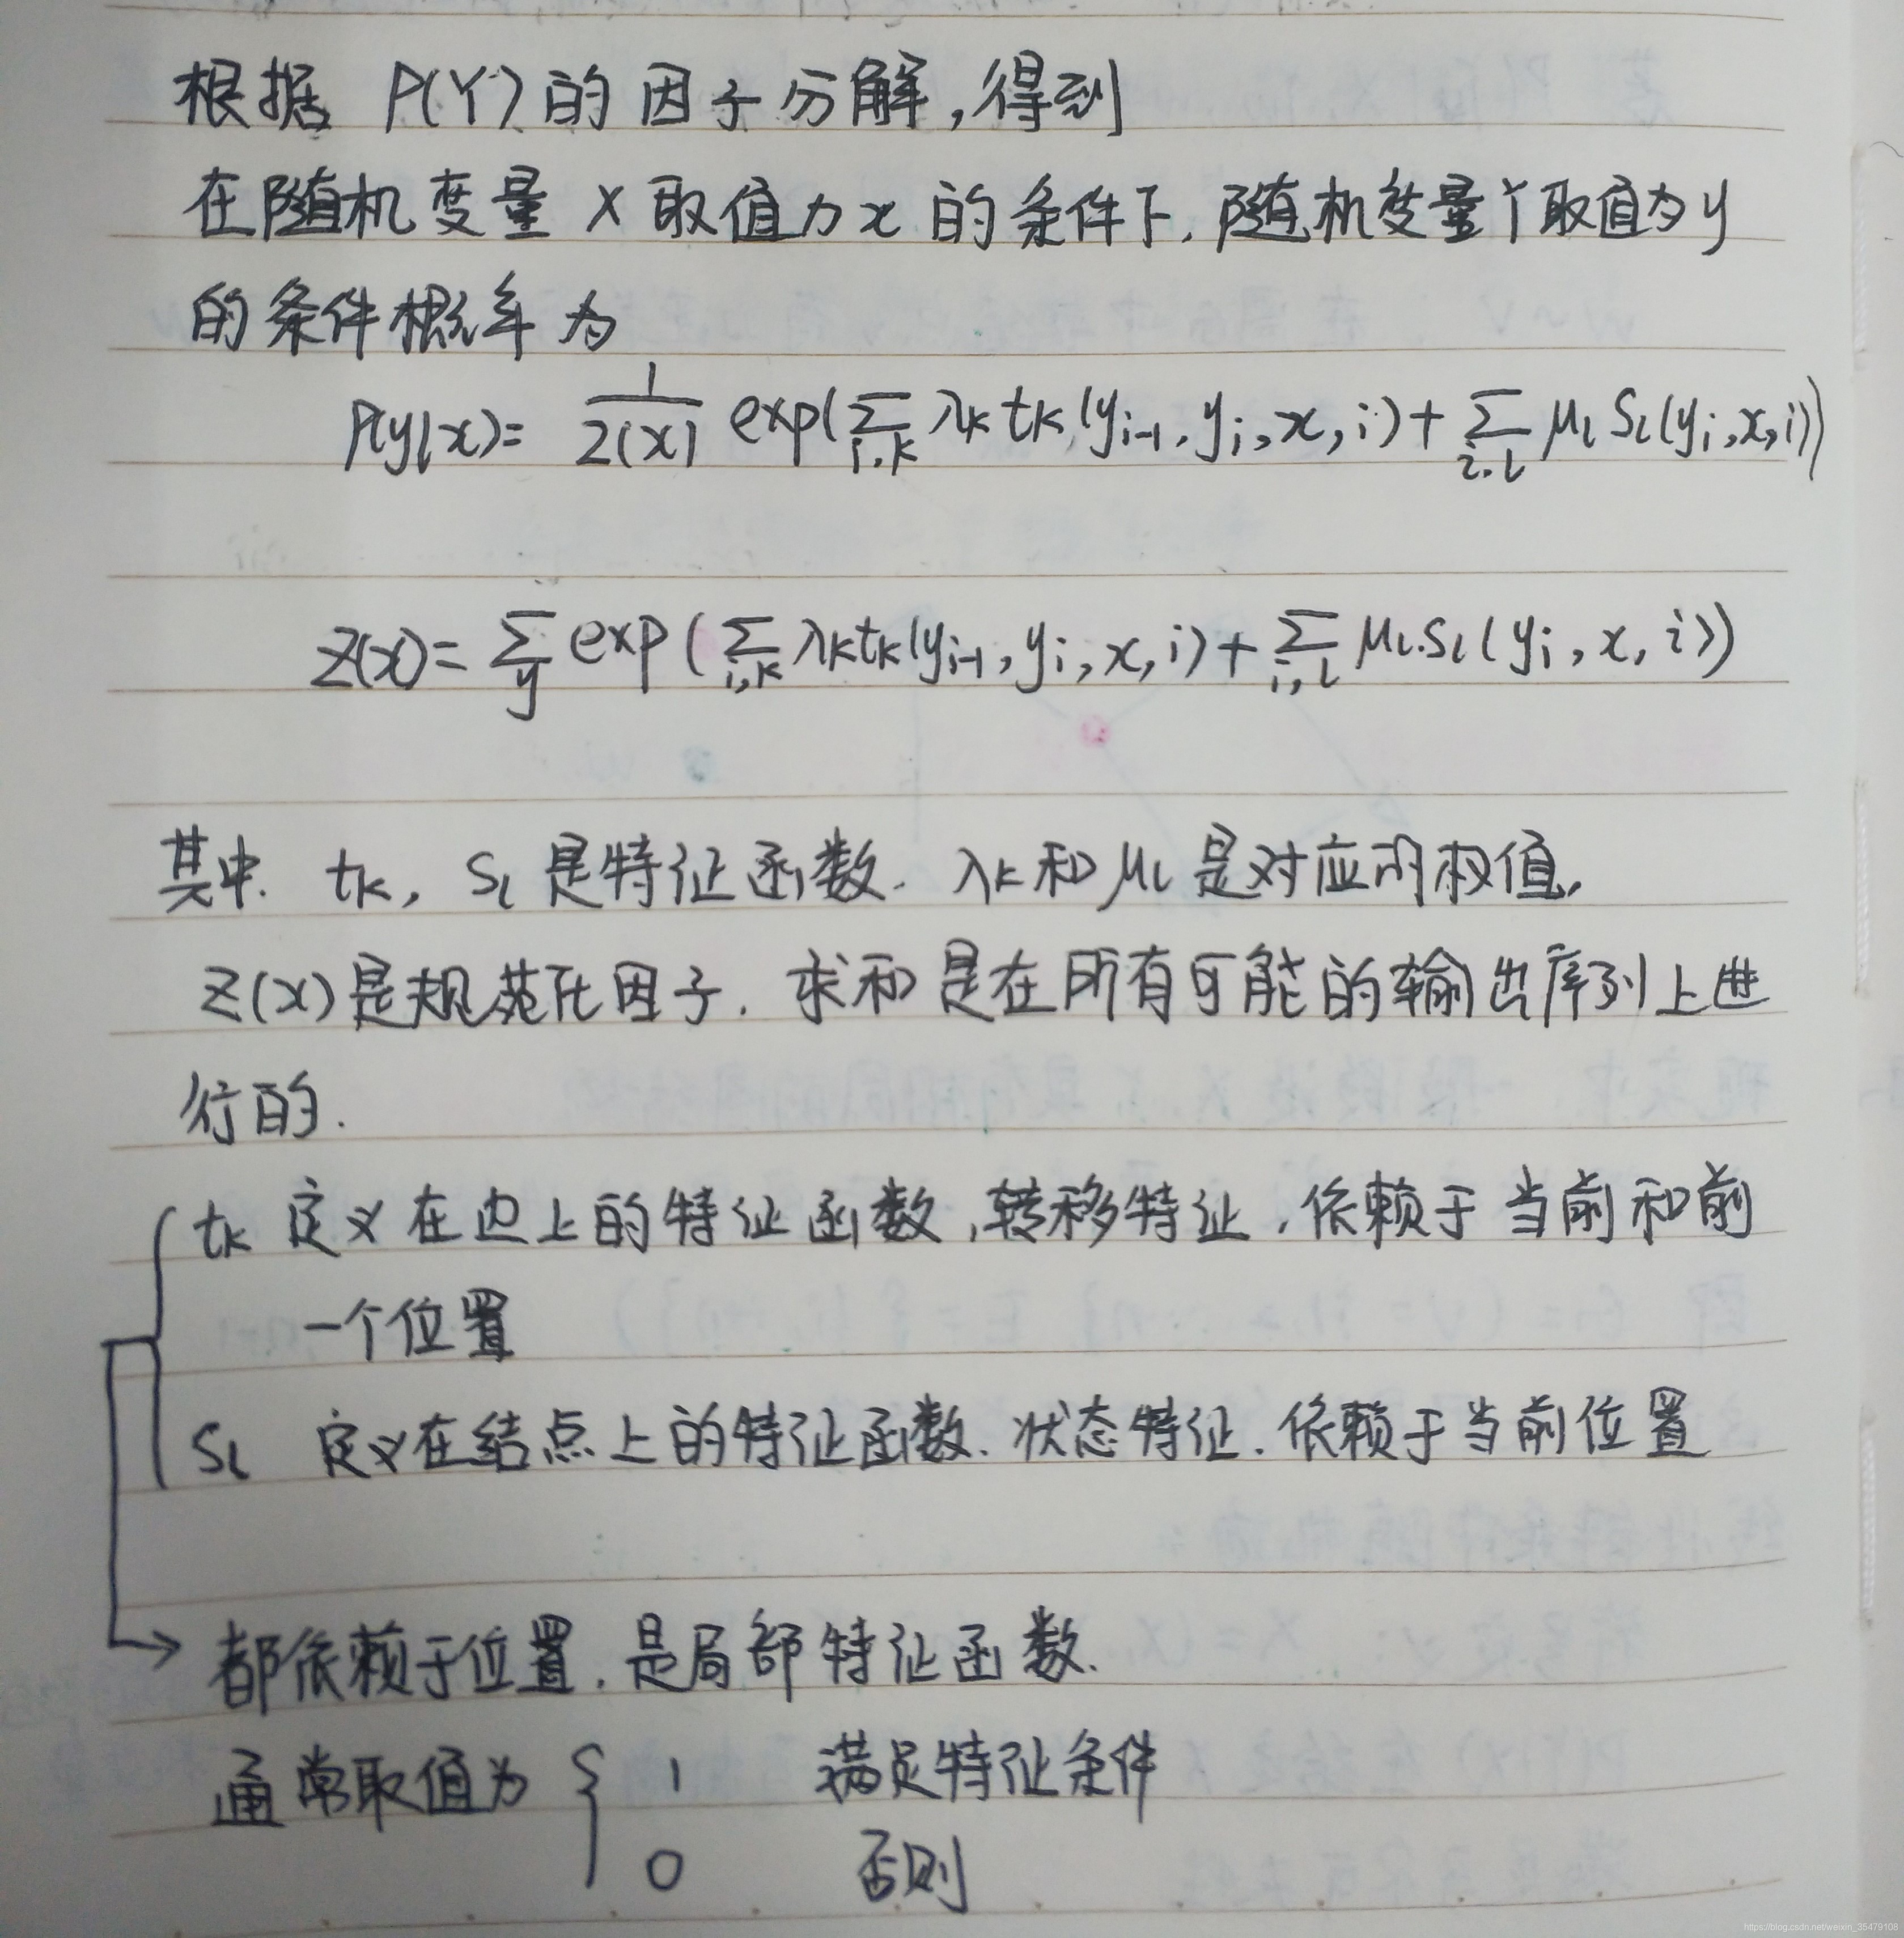 根据 P(Y)的因子分解,得到
在随机变量 X 取值为 x 的条件下,随机变量Y取值为y
的条件概率为
P(y|x)= 1/Z(x) exp(∑i,k λk tk(yi-1, yi, x, i) + ∑i,l μl sl(yi, x, i))
Z(x)= ∑y exp(∑i,k λk tk(yi-1, yi, x, i) + ∑i,l μl sl(yi, x, i))
其中. tk, sl 是特征函数. λk和μl 是对应的权值,
Z(x)是规范化因子. 求和是在所有可能的输出序列上进
行的.
tk 定义在边上的特征函数,转移特征,依赖于当前和前
一个位置
sl 定义在结点上的特征函数.状态特征.依赖于当前位置
→ 都依赖于位置.是局部特征函数.
通常取值为 { 1 满足特征条件
0 否则
https://blog.csdn.net/weixin_35479108